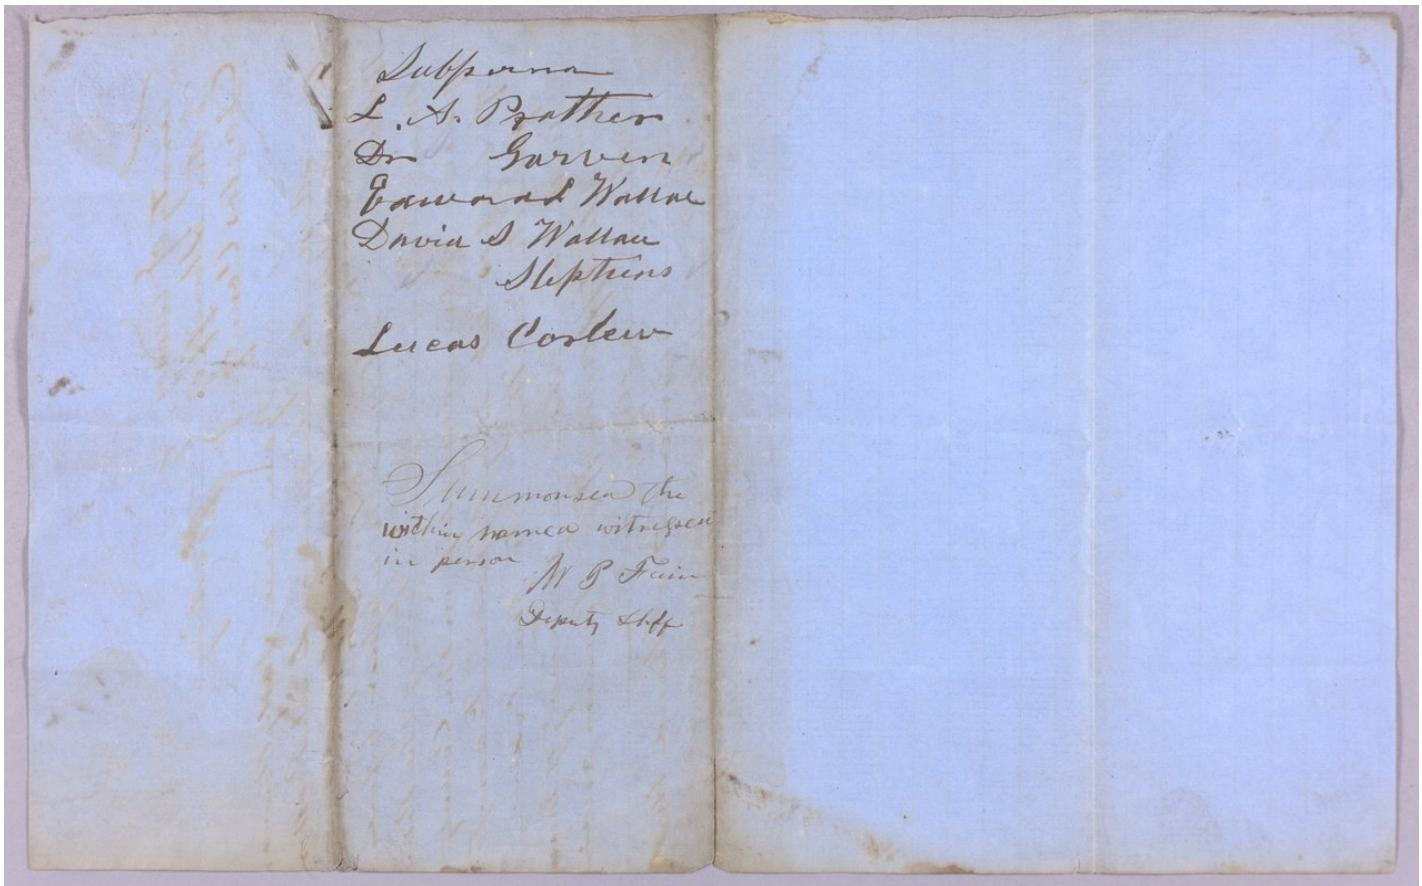 Subpoena
L. A. Prather
Dr Garven
Edward Wallace
David S Wallace
Stephens
Lucas Corlew
Summonsed the
within named witnesses
in person
W P Fain
Deputy Shff